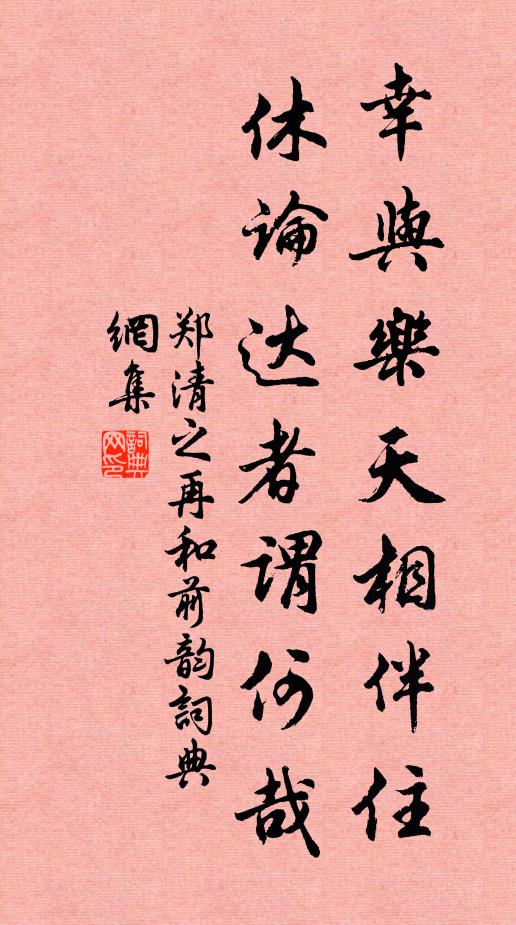 幸與樂天相伴住
休論达者謂何哉
郑清之再和前韵詞典
網集
詞典
网印